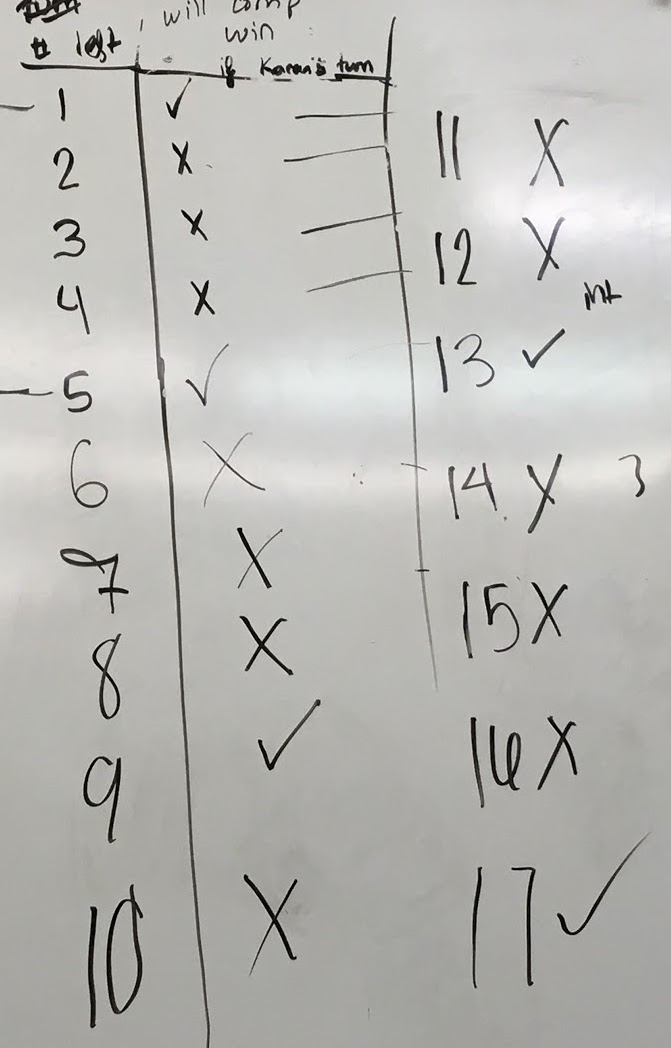 will comp
# left, win
if Karan's turn
1 ✓
2 X
3 X
4 X
5 ✓
6 X
7 X
8 X
9 ✓
10 X
11 X
12 X
13 ✓
14 X 3
15 X
16 X
17 ✓